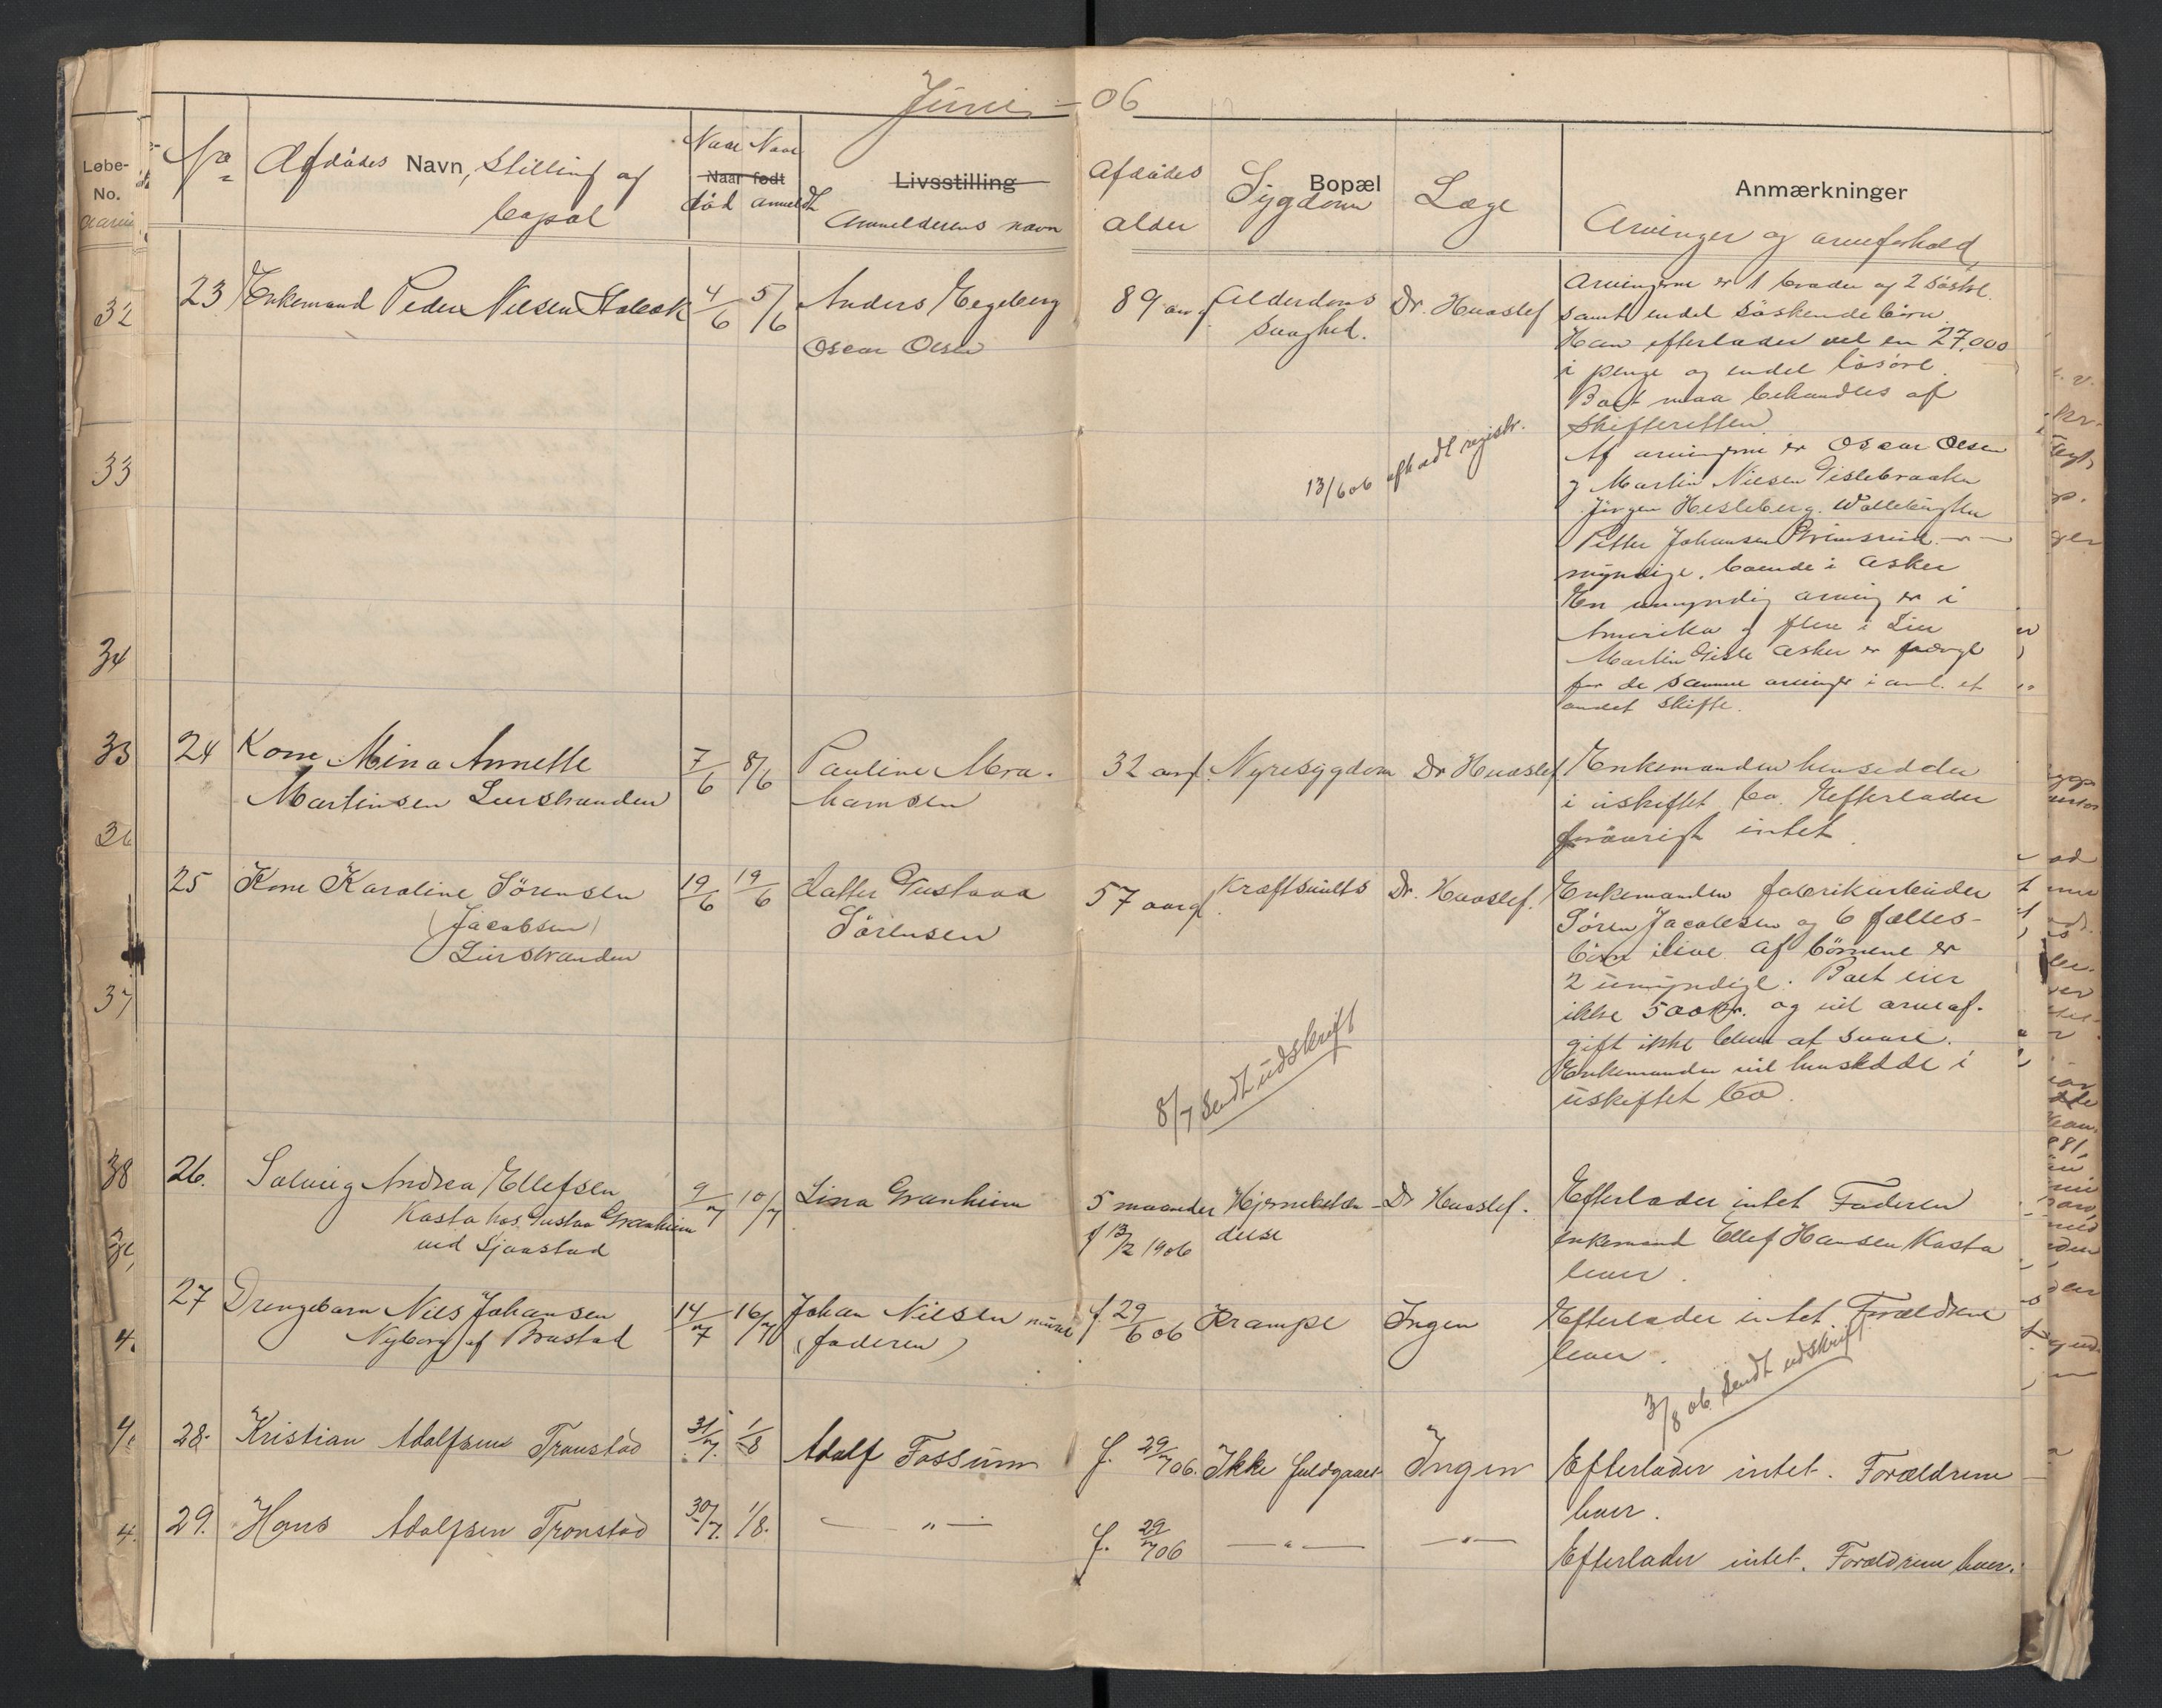 Juni - 06
Løbe-
No.
No
Afdødes Navn, stilling og
bopæl
Naar Naar
Naar født
død anmeldt
Livsstilling
Anmelderens navn
Afdødes
alder
Bopæl
Sygdom
Læge
Anmærkninger
Arvinger og arveforhold
23 Enkemand Peder Nilsen 4/6 5/6 Anders Hegeberg
Oscar Olsen
89 aar g. Alderdoms
svaghed.
Dr. Huaslef
Arvingerne er 1 broder og 2 søstre
samt endel söskendebörn.
Han efterlader vel en 27,000
i penge og endel lösöre.
Boet maa behandles af
Skifteretten.
13/6 06 afholdt registr.
Af arvingerne er Oscar Olsen
og Martin Nilsen Gislebraaten
Jörgen Hesleberg. Wollebugten
Petter Johansen Grimsrud - " -
myndige, boende i Asker
En umyndig arving er i
Amerika og flere i Lier
Martin Gisle Asker er
for de samme arvinger i anl. et
andet skifte.
24 Kone Mina Annette 7/6 8/6 Pauline Abra-
Martinsen Lierstranden
hamsen
32 aar g. Nyresygdom Dr Huaslef
Enkemanden hensidder
i uskiftet bo. Efterlader
forövrigt intet.
25 Kone Karoline Sörensen 19/6 19/6 datter Gustava
(Jacobsen)
Lierstranden
Sörensen
57 aar g. Kraftsvulst Dr. Huaslef.
Enkemanden fabrikarbeider
Sören Jacobsen og 6 fælles-
börn ilive. Af börnene er
2 umyndige. Boet eier
ikke 500 kr. og vil arveaf-
gift ikke blive at svare.
Enkemanden vil hensidde i
uskiftet bo.
8/7 sendt udskrift
26. Solveig Andrea Ellefsen 9/7 10/7 Lina Granheim
Kasta hos Gustav Granheim
ved Sjaastad
5 maaneder
f 13/2 1906
Hjernebetæn-
delse
Dr Huaslef.
Efterlader intet Faderen
enkemand Ellef Hansen Kasta
lever.
27 Drengebarn Nils Johansen 14/7 16/7 Johan Nilsen
Nyborg af Brastad
(faderen)
f. 29/6 06 Krampe Ingen
Efterlader intet. Forældrene
lever.
3/8 06 sendt udskrift
28. Kristian Adolfsen Tronstad 31/7. 1/8 Adolf Fossum
f. 29/7 06. Ikke fuldgaaet Ingen
Efterlader intet. Forældrene
lever.
29. Hans Adolfsen Tronstad 30/7. 1/8. - " -
f. 29/7 06 - " - - " -
Efterlader intet. Forældrene lever.
32
33
34
33
37
38